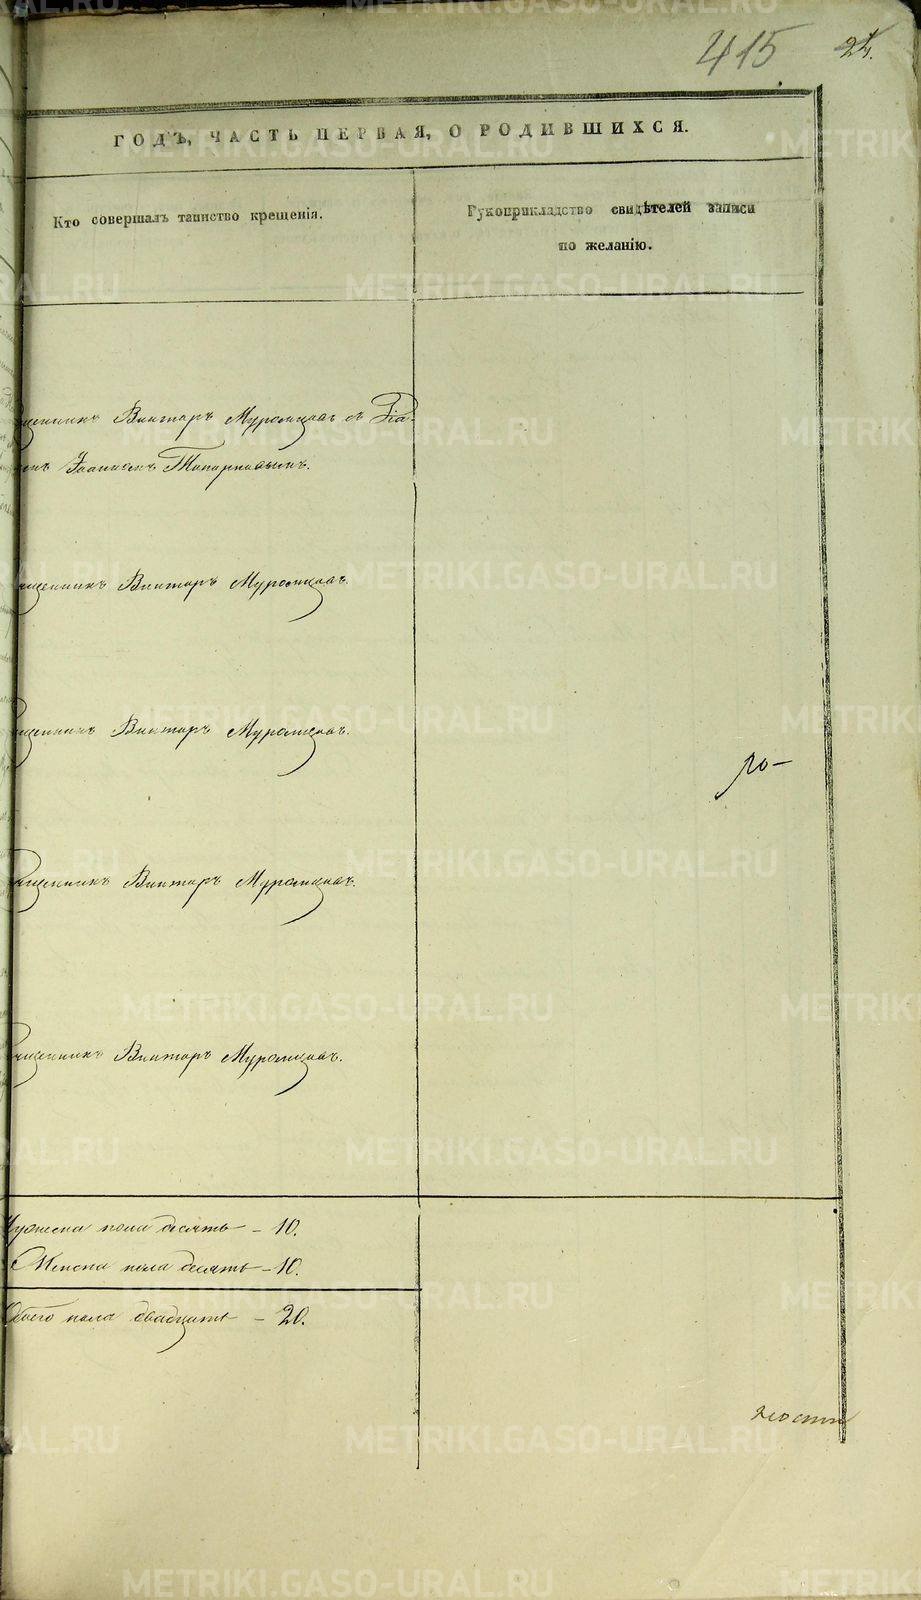 415 24.
ГОДЪ, ЧАСТЬ ПЕРВАЯ, О РОДИВШИХСЯ.
Кто совершалъ таинство крещенія.
Рукоприкладство свидѣтелей записи
по желанію.
щенникъ Викторъ Муромцовъ съ Діа-
Іоанномъ Топорковымъ.
щенникъ Викторъ Муромцовъ.
щенникъ Викторъ Муромцовъ.
ро-
щенникъ Викторъ Муромцовъ.
щенникъ Викторъ Муромцовъ.
Мужеска пола десять – 10.
Женска пола десять – 10.
Обоего пола двадцать – 20.
METRIKI.GASO-URAL.RU